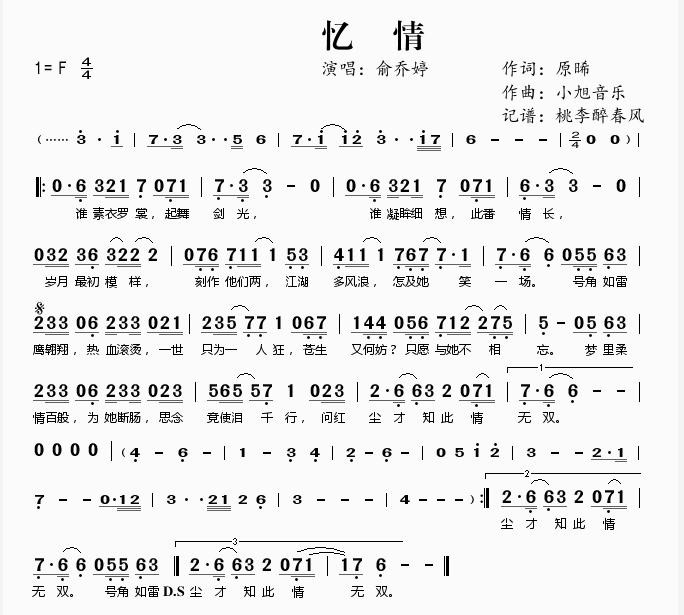 忆 情
1= F 4/4
演唱：俞乔婷
作词：原晞
作曲：小旭音乐
记谱：桃李醉春风
(······ 3 · i | 7·3 3··5 6 | 7·i i2 3··i7 | 6 - - - | 2/4 0 0 )|
‖: 0·6 321 7 071 | 7·3 3 - 0 | 0·6 321 7 071 | 6·3 3 - 0 |
谁 素衣罗 裳，起舞 剑 光， 谁 凝眸细 想，此番 情 长，
032 36 322 2 | 076 711 1 53 | 411 1 767 7·1 | 7·6 6 055 63 |
岁月 最初 模 样， 刻作 他们两，江湖 多风浪，怎及她 笑 一 场。 号角 如雷
233 06 233 021 | 235 77 1 067 | 144 056 712 275 | 5 - 05 63 |
鹰翱翔，热 血滚烫，一世 只为一 人 狂，苍生 又何妨？只愿 与她不 相 忘。 梦 里柔
233 06 233 023 | 565 57 1 023 | 2·6 63 2 071 | 1 7·6 6 - - |
情百般，为 她断肠，思念 竟使泪 千 行，问红 尘 才 知此 情 无 双。
0 0 0 0 | (4 - 6 - | 1 - 3 4 | 2 - 6 - | 0 5 i 2 | 3 - - 2·1 |
7 - - 0·12 | 3··21 2 6 | 3 - - - | 4 - - - ) :‖ 2 2·6 63 2 071 |
尘 才 知此 情
7·6 6 055 63 ‖ 3 2·6 63 2 071 | 17 6 - - ‖
无 双。 号角 如雷 D.S 尘 才 知此 情 无 双。